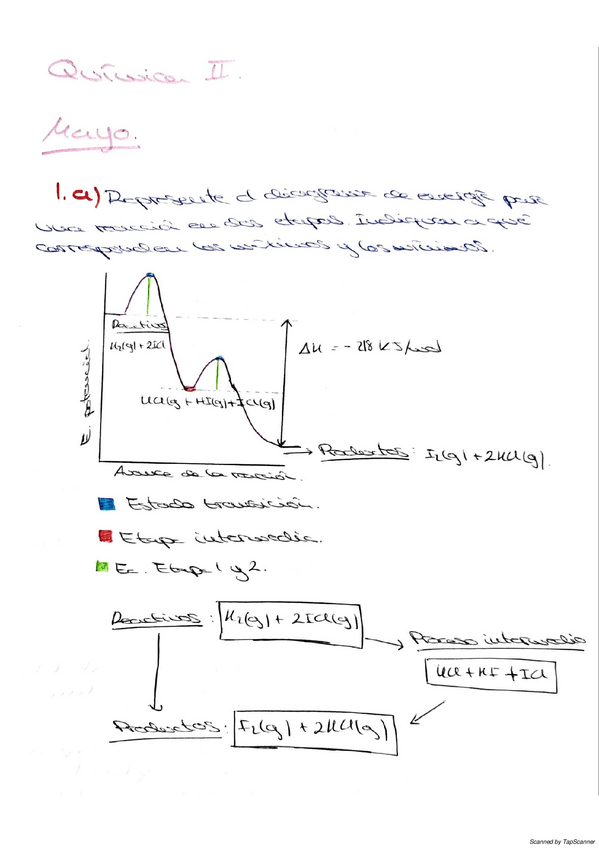 Química II.
Mayo.
1. a) Represente el diagrama de energía para
una reacción en dos etapas. Indiquen a qué
corresponden los máximos y los mínimos.
E. potencial.
Reactivos
H2(g) + 2ICl
HCl(g) + HI(g) + ICl(g)
ΔH = -218 KJ/mol
Productos: I2(g) + 2HCl(g).
Avance de la reacción.
Estado transición.
Etapa intermedia.
Ea. Etapa 1 y 2.
Reactivos: H2(g) + 2ICl(g)
Proceso intermedio
HCl + HI + ICl
Productos: I2(g) + 2HCl(g)
Scanned by TapScanner